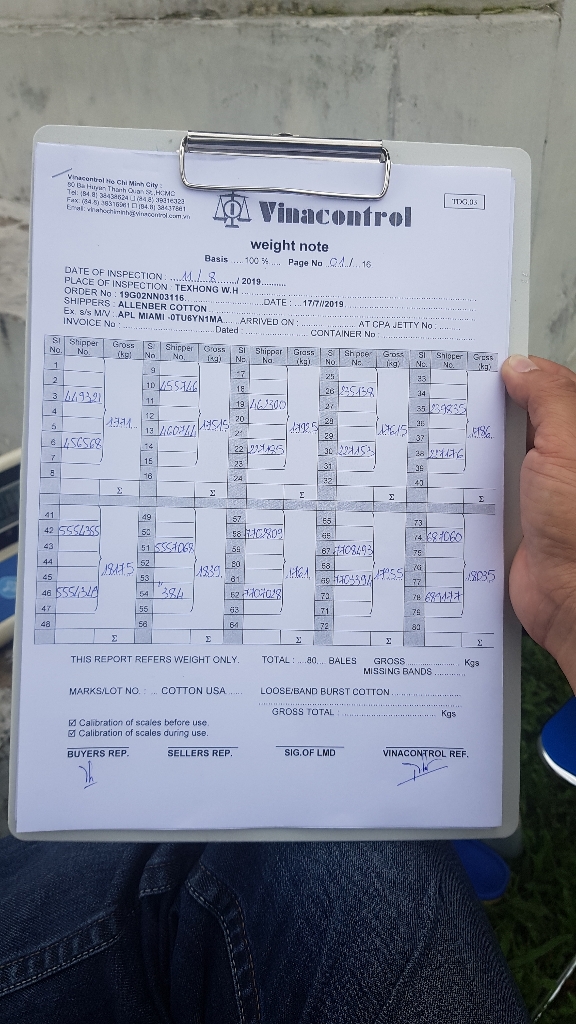 Vinacontrol Ho Chi Minh City :
80 Ba Huyen Thanh Quan St.,HCMC
Tel: (84.8)
Fax: (84.8)
Email: vinahochiminh@vinacontrol.com.vn
TDG.03
Vinacontrol
weight note
Basis ... 100 % .... Page No 01/....16
DATE OF INSPECTION : ....11/8....../ 2019..........
PLACE OF INSPECTION : TEXHONG W.H
ORDER No : 19G02NN03116 DATE : ....17/7//2019
SHIPPERS : ALLENBER COTTON
Ex. s/s M/V : APL MIAMI -0TU6YN1MA... ARRIVED ON : AT CPA JETTY No :
INVOICE No : Dated CONTAINER No
Sl No. Shipper No. Gross (kg) Sl No. Shipper No. Gross (kg) Sl No. Shipper No. Gross (kg) Sl No Shipper No. Gross (kg) Sl No. Shipper No. Gross (kg)
1 9 17 25 33
2 10 455746 18 26 235138 34
3 449321 11 19 462300 27 35 239835
4 12 20 28 36
5 13 460744 21 29 37
6 456568 14 22 227185 30 227153 38 227176
7 15 23 31 39
8 16 24 32 40
Σ Σ Σ Σ Σ
41 49 57 65 73
42 5554355 50 58 7702809 66 74 687060
43 51 5557068 59 67 7708493 75
44 52 60 68 76
45 53 61 69 7703394 77
46 5554340 54 384 62 7707028 70 78 689177
47 55 63 71 79
48 56 64 72 80
Σ Σ Σ Σ Σ
THIS REPORT REFERS WEIGHT ONLY. TOTAL : ....80... BALES GROSS Kgs
MISSING BANDS
MARKS/LOT NO. : ... COTTON USA ..... LOOSE/BAND BURST COTTON
GROSS TOTAL : Kgs
☑ Calibration of scales before use.
☑ Calibration of scales during use.
BUYERS REP. SELLERS REP. SIG.OF LMD VINACONTROL REF.